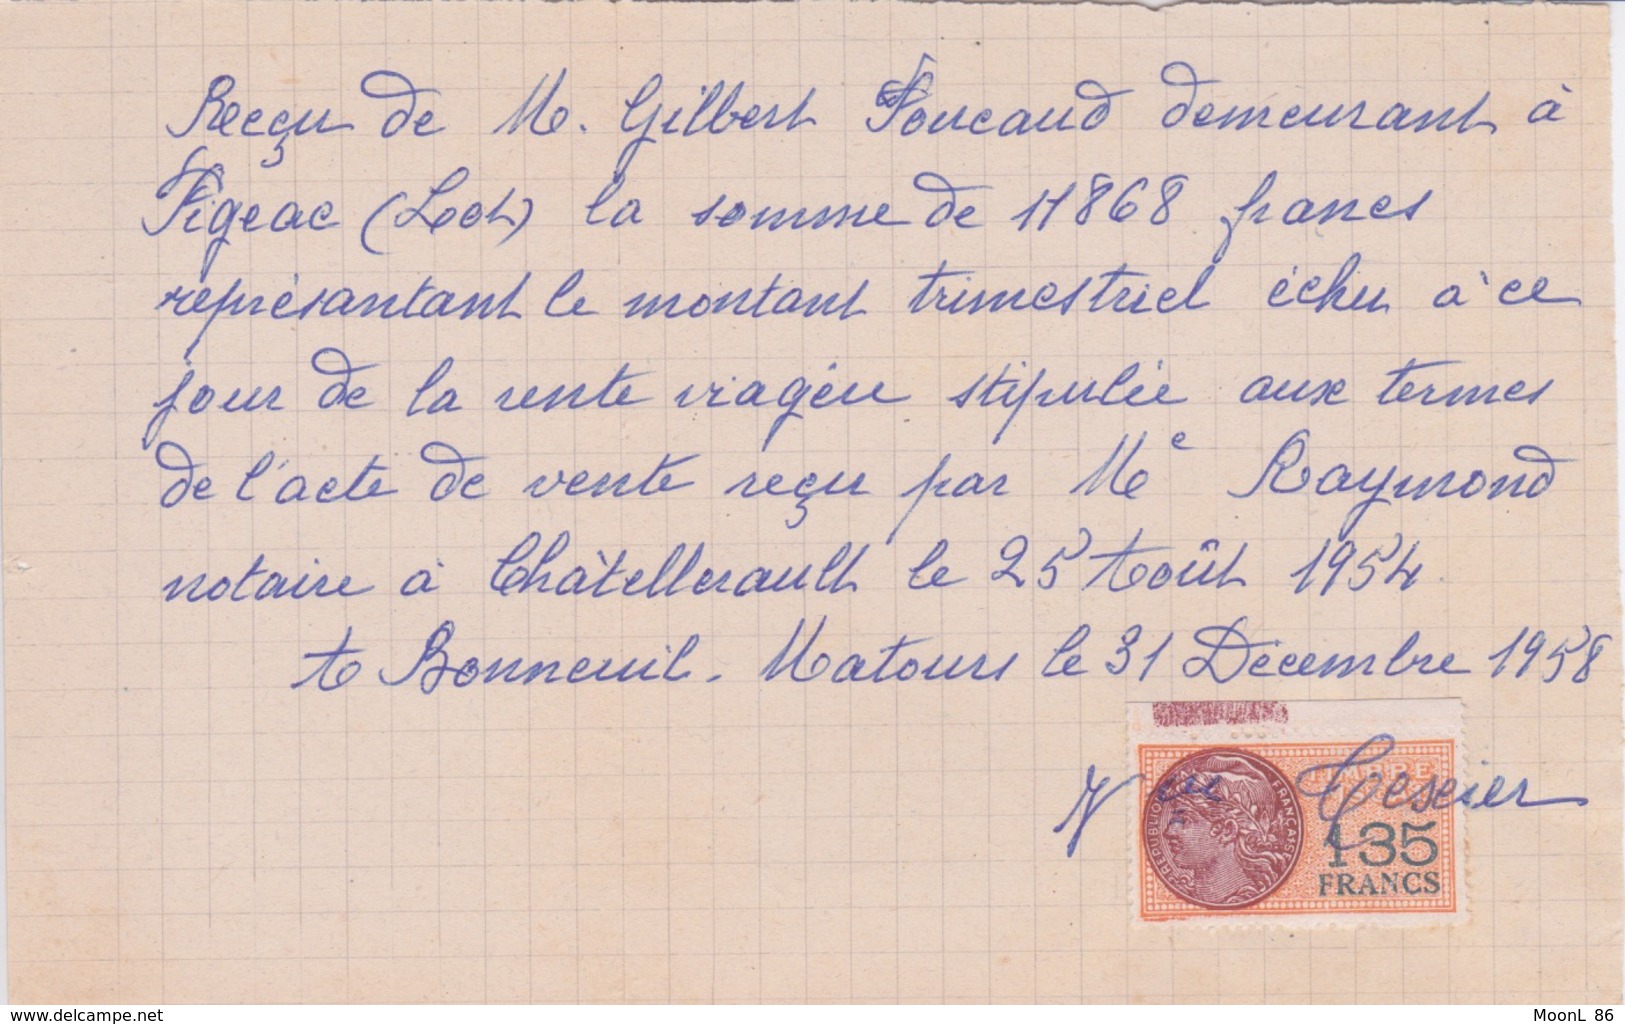 Reçu de M. Gilbert Foucaud demeurant à
Figeac (Lot) la somme de 11868 francs
représantant le montant trimestriel échu à ce
jour de la rente viagère stipulée aux termes
de l'acte de vente reçu par Me Raymond
notaire à Châtellerault le 25 Août 1954
A Bonneuil-Matours le 31 Décembre 1958
Vve Tessier
TIMBRE
REPUBLIQUE FRANÇAISE
135
FRANCS
www.delcampe.net
MoonL 86